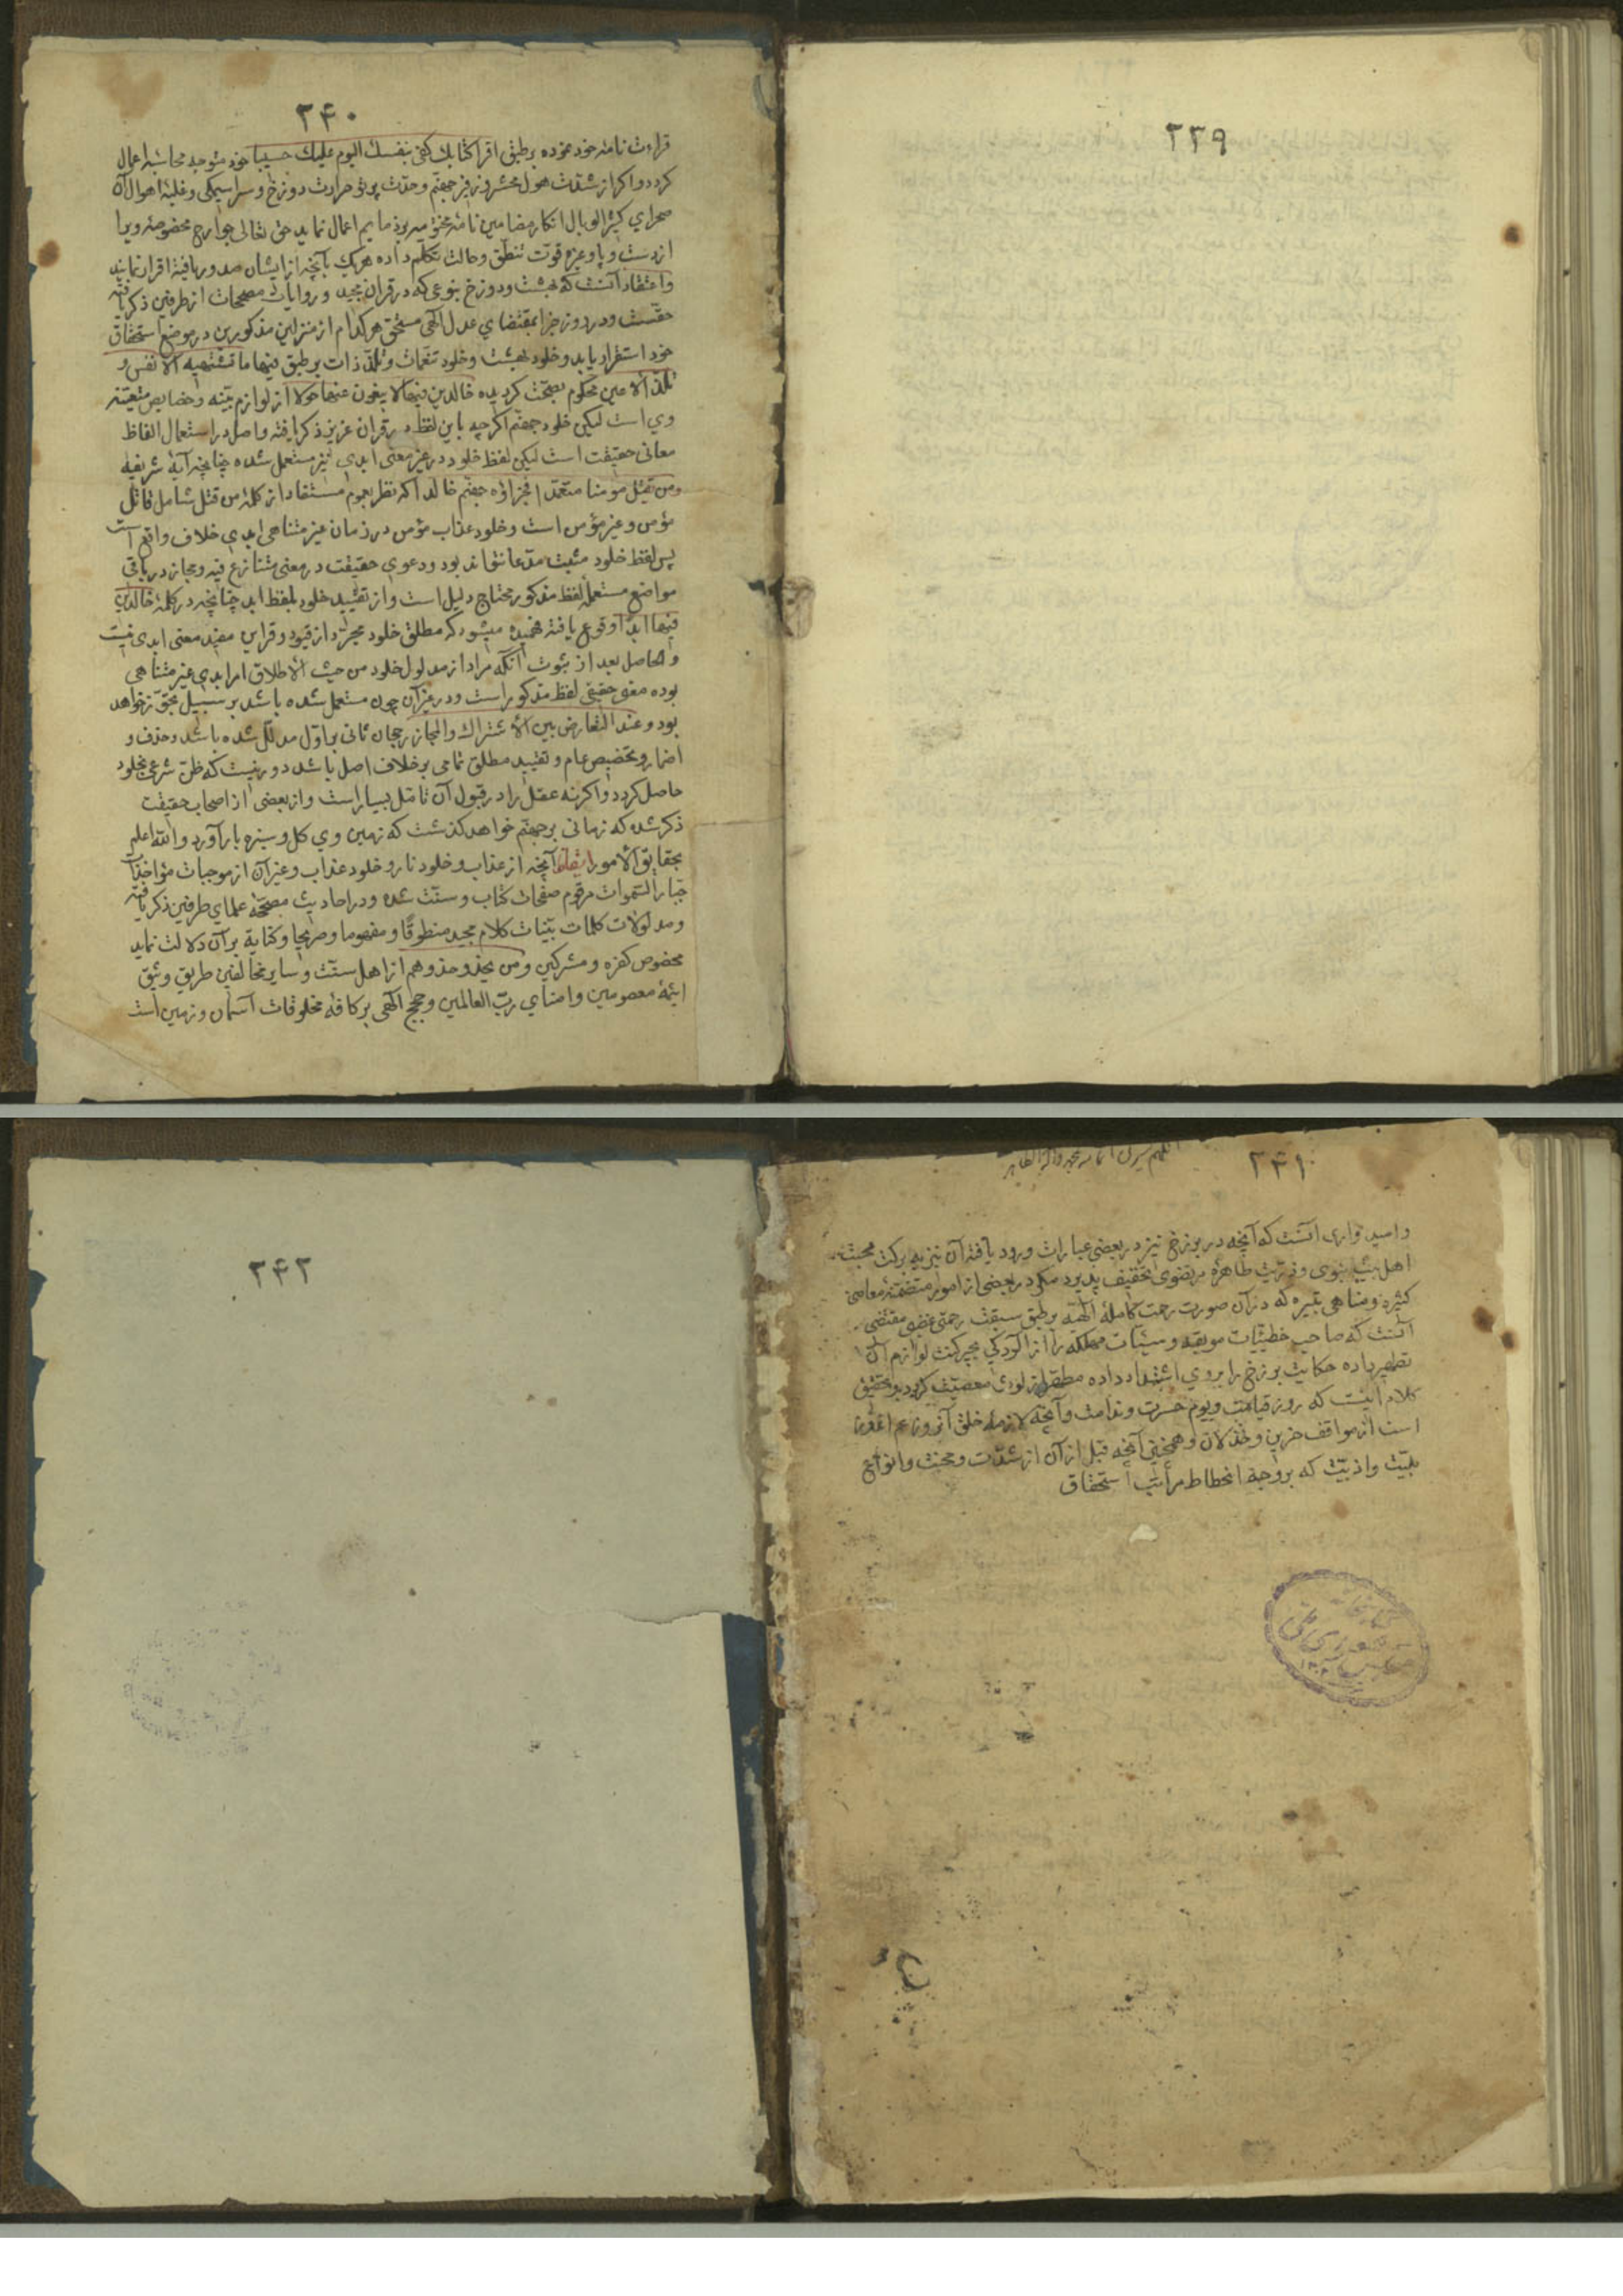 ۲۳۹
۲۴۰
قراءت نامهٔ خود نموده بر طبق اقرا کتابک کفی بنفسک الیوم علیک حسیبا خود متوجه محاسبه اعمال
کردد و اکر از شدت هول محشر و زفیر جهنم و حدّت پرتو حرارت دوزخ و سراسیمکی و غلبهٔ اهوال آن
صحرای کثیر الوبال انکار مضامین نامه نماید حق تعالی جوارح مخصوصهٔ ویرا
از دست و پا و غیره قوّت تنطّق و حالت تکلم داده هریک بآنچه از ایشان صدور یافته اقرار نمایند
و اعتقاد آنست که بهشت و دوزخ بنوعی که در قران مجید و روایات مصححات از طرفین ذکر یافته
حقّست و در روز جزا بمقتضای عدل الهی مستحق هر کدام از منزلین مذکورین در موضع استحقاق
خود استقرار یابد و خلود بهشت و خلود تنعمات و تلذّذات بر طبق فیها ما تشتهیه الانفس و
تلذّ الاعین محکوم بصحّت کردیده خالدین فیها لا یبغون عنها حولا از لوازم بیّنه و خصایص متعیّنه
وی است لیکن خلود جهنم اکرچه باین لفظ در قران عزیز ذکر یافته و اصل در استعمال الفاظ
معانی حقیقت است لیکن لفظ خلود در غیر معنی ابدی نیز مستعمل شده چنانچه آیهٔ شریفه
ومن یقتل مؤمنا متعمّدا فجزاؤه جهنم خالدا که نظر بعموم مستفاد از کلمهٔ من قتل شامل قاتل
مؤمن و غیر مؤمن است و خلود عذاب مؤمن در زمان غیر متناهی ابدی خلاف واقع است
پس لفظ خلود مثبت مدّعا نتواند بود و دعوی حقیقت در معنی متنازع فیه و مجاز در باقی
مواضع مستعملهٔ لفظ مذکور محتاج دلیل است و از تقیید خلود بلفظ ابد چنانچه در کلمهٔ خالدین
فیها ابدا وقوع یافته فهمیده میشود که مطلق خلود مجرّد از قیود و قراین مفید معنی ابدی نیست
و الحاصل بعد از ثبوت آنکه مراد از مدلول خلود من حیث الاطلاق امر ابدی غیر متناهی
بوده معنی حقیقی لفظ مذکور است و در غیر آن چون مستعمل شده باشد بر سبیل تجوّز خواهد
بود و عند التعارض بین الاشتراک و المجاز رجحان ثانی بر اوّل مدلّل شده باشد و حذف و
اضمار و تخصیص عام و تقیید مطلق تمامی بر خلاف اصل باشد دور نیست که ظنّ شرعی بخلود
حاصل کردد و اکرنه عقل را در قبول آن تامّل بسیار است و از بعضی از اصحاب حقیقت
ذکر شده که زمانی بر جهنم خواهد کذشت که زمین وی کل و سبزه بار آورد و الله اعلم
بحقایق الامور ایقاظ آنچه از عذاب و خلود نار و خلود عذاب و غیر آن از موجبات مؤاخذات
جبّار السّموات مرقوم صفحات کتاب و سنّت شده و در احادیث مصحّحهٔ علمای طرفین ذکر یافته
و مدلولات کلمات بیّنات کلام مجید منطوقا و مفهوما و صریحا و کنایة بر آن دلالت نماید
مخصوص کفره و مشرکین و من یحذو حذوهم از اهل سنّت و سایر مخالفین طریق وثیق
ایمّهٔ معصومین و امنای ربّ العالمین و حجج الهی بر کافهٔ مخلوقات آسمان و زمین است
۲۴۱
و امیدواری آنست که آنچه در برزخ نیز در بعضی عبارات ورود یافته آن نیز به برکت محبّت
اهل بیت نبوی و ذریّت طاهره مرتضوی تخفیف پذیرد مکر در بعضی از امور متضمّنهٔ معاصی
کثیره و مناهی کبیره که در آن صورت رحمت کاملهٔ الهیّه بر طبق سبقت رحمتی غضبی مقتضی
آنست که صاحب خطیئات موبقه و سیّئات مهلکه را از آلودکی لوازم آن
تطهیر داده حکایت برزخ را بروی اشتداد داده مطهّر از لوث معصیت کردد و تحقیق
کلام اینست که روز قیامت و یوم حسرت و ندامت و آنچه لازمهٔ خلق آنروز
است از مواقف خزین و خذلان و همچنین آنچه قبل از آن از شدّت و محنت و انواع
بلیّت و اذیّت که بر وجه انحطاط مراتب استحقاق
کتابخانه
مجلس شورای ملی
۲۴۲